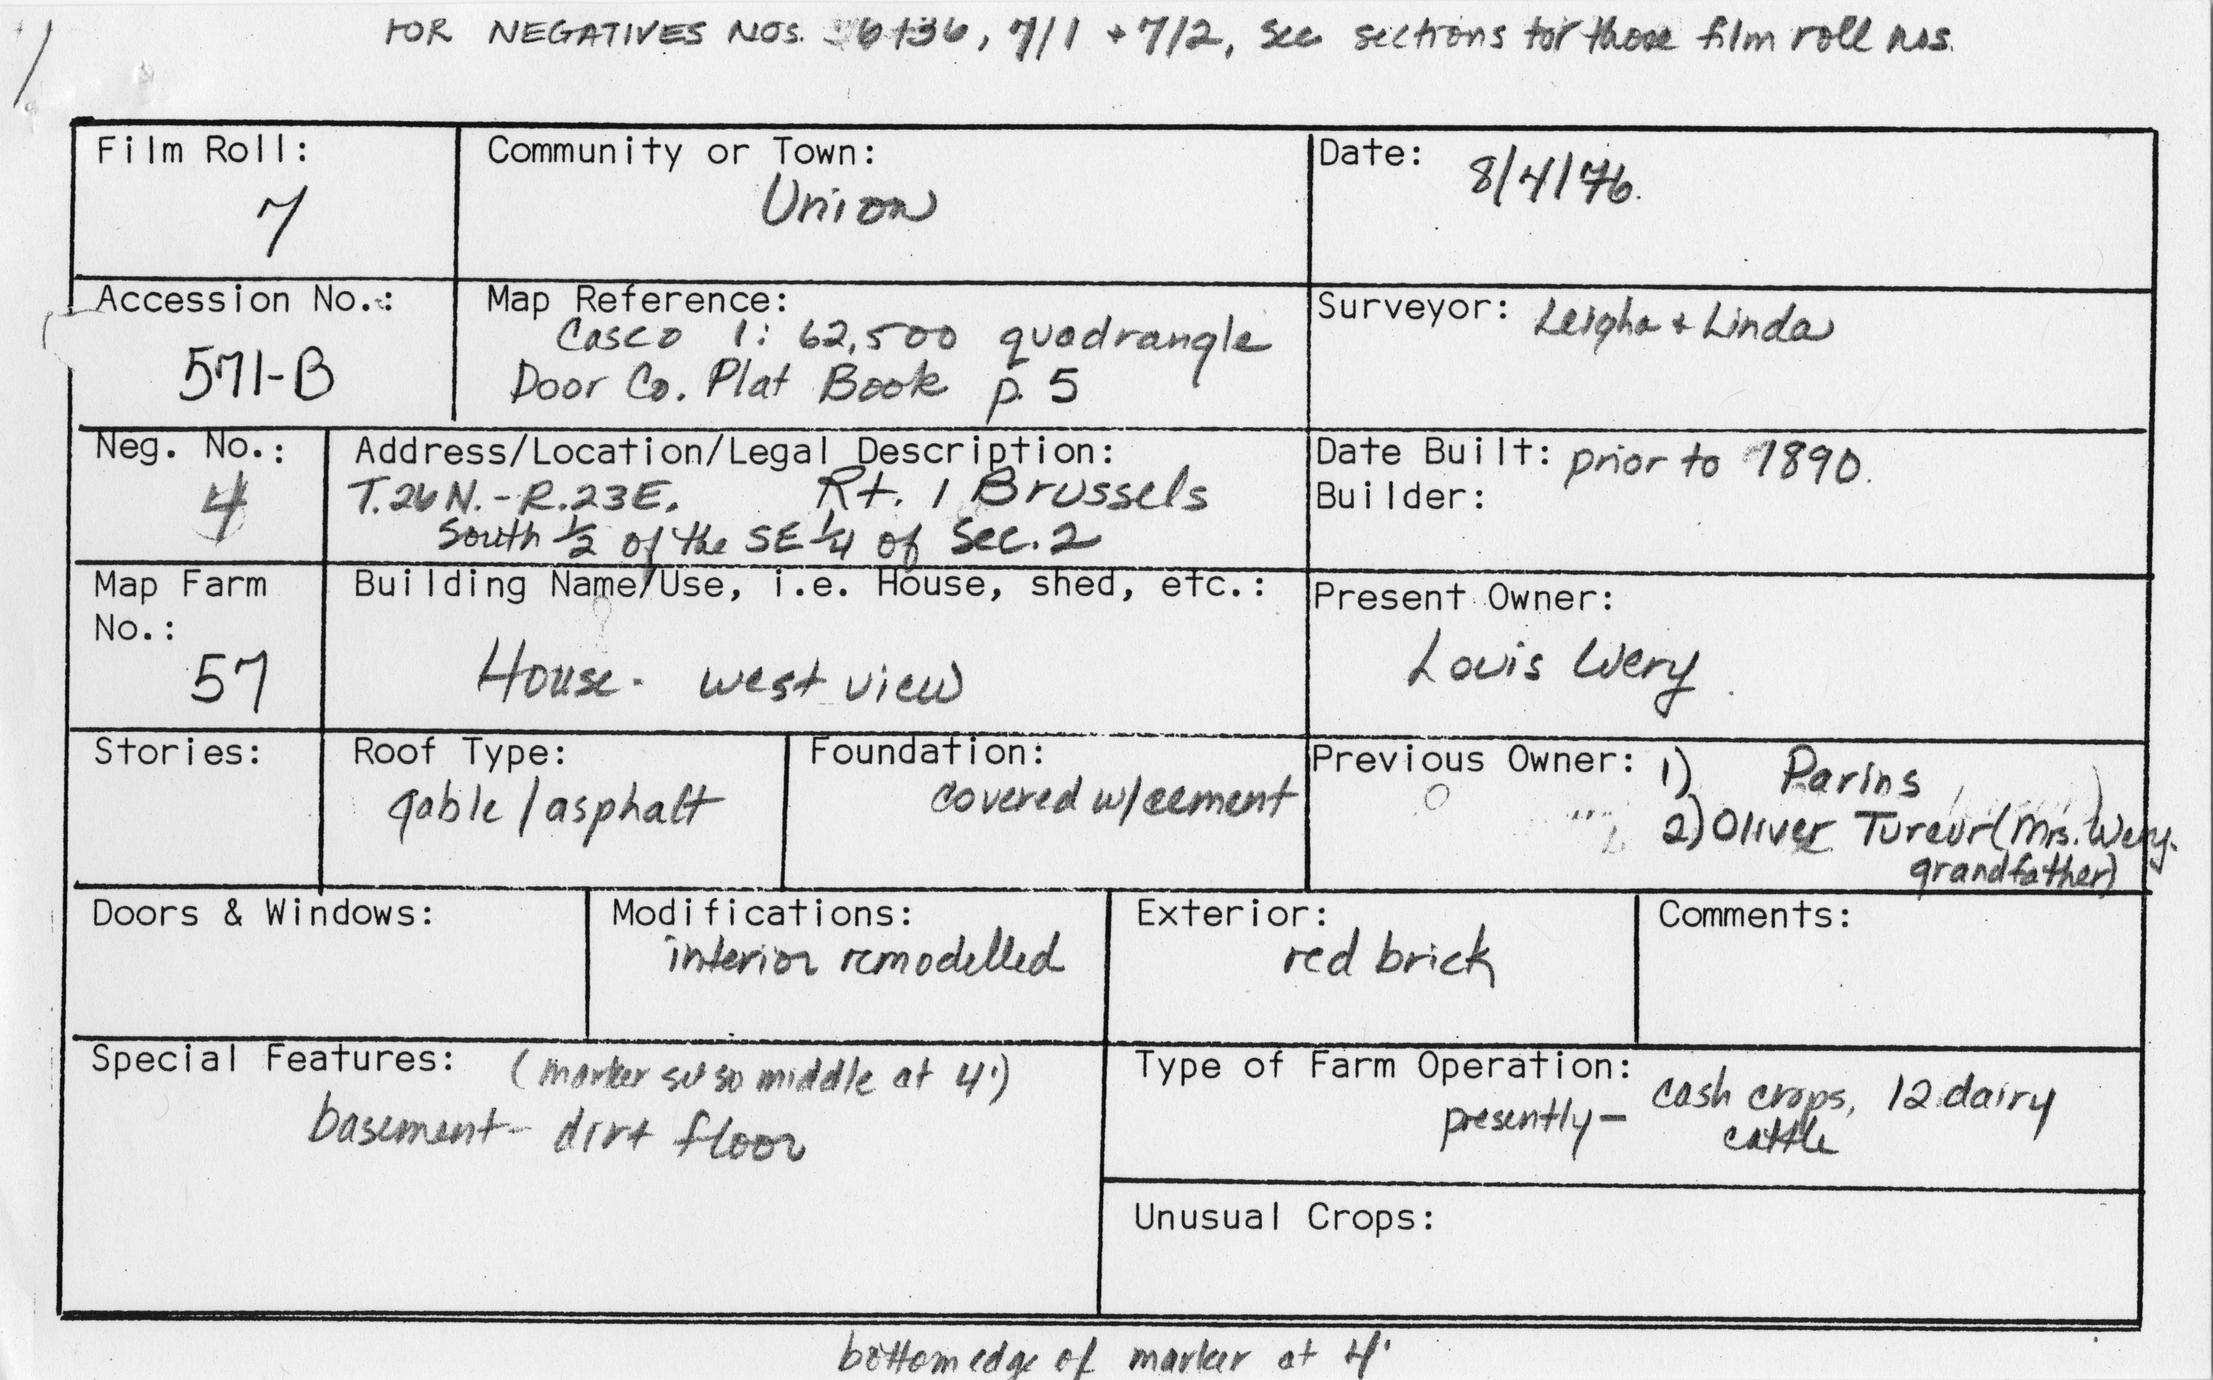 FOR NEGATIVES NOS. 6+36, 7/1 + 7/2, see sections for those film roll nos.
Film Roll:
7
Community or Town:
Union
Date: 8/4/76.
Accession No.:
571-B
Map Reference:
Casco 1: 62,500 quadrangle
Door Co. Plat Book p. 5
Surveyor: Leigha + Linda
Neg. No.:
4
Address/Location/Legal Description:
T.26N.-R.23E. Rt. 1 Brussels
South 1/2 of the SE 1/4 of Sec. 2
Date Built: prior to 1890.
Builder:
Map Farm
No.:
57
Building Name/Use, i.e. House, shed, etc.:
House - west view
Present Owner:
Louis Wery
Stories:
Roof Type:
gable / asphalt
Foundation:
covered w/cement
Previous Owner: 1) Parins
2) Oliver Tureur (Mrs. Wery.
grandfather)
Doors & Windows:
Modifications:
interior remodelled
Exterior:
red brick
Comments:
Special Features: (marker set so middle at 4')
basement - dirt floor
Type of Farm Operation:
presently - cash crops, 12 dairy
cattle
Unusual Crops:
bottom edge of marker at 4'